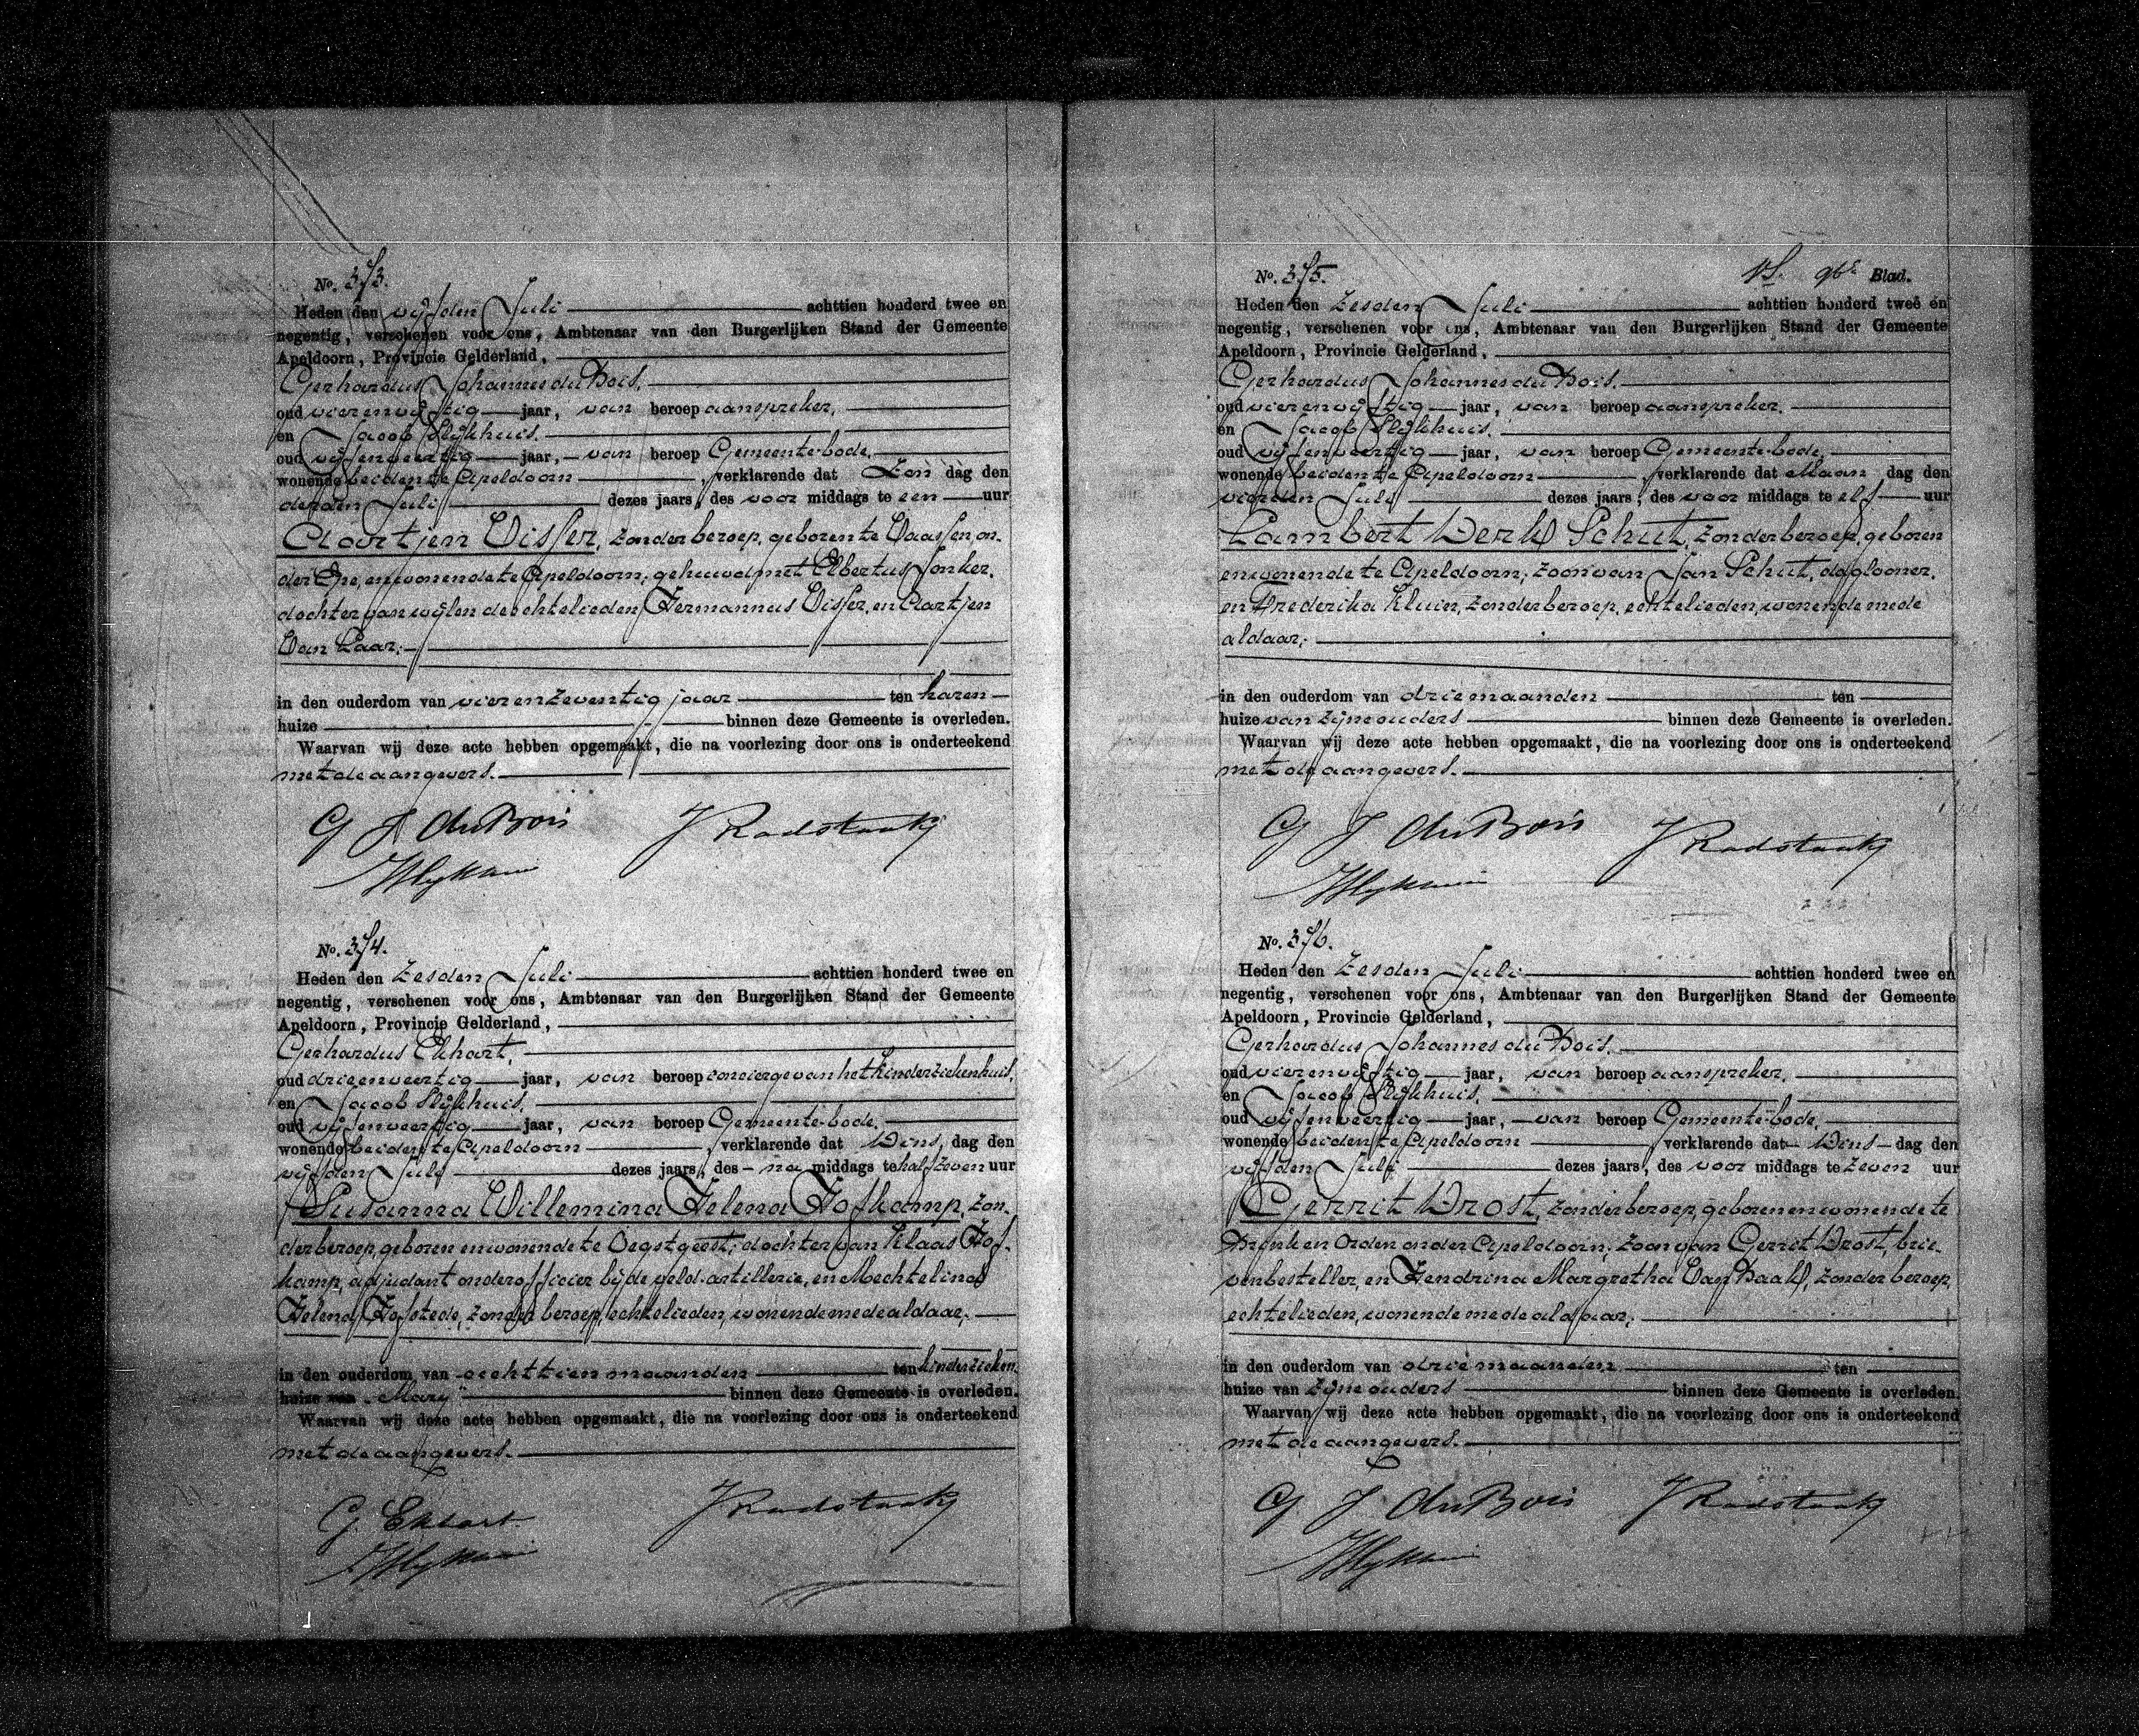 No. 373.
Heden den vijfden Juli achttien honderd twee en
negentig, verschenen voor ons, Ambtenaar van den Burgerlijken Stand der Gemeente
Apeldoorn, Provincie Gelderland,
Gerhardus Johannes du Bois,
oud vierenvijftig jaar, van beroep aanspreker,
en Jacob Slijkhuis,
oud vijfenveertig jaar, van beroep Gemeente-bode,
wonende beiden te Apeldoorn, verklarende dat Zon dag den
derden Juli dezes jaars, des voor middags te een uur
Aartjen Visser, zonder beroep, geboren te Vaassen, on-
der Epe, en wonende te Apeldoorn; gehuwd met Elbertus Jonker,
dochter van wijlen de echtelieden Hermannus Visser, en Aartjen
Van Laar;
in den ouderdom van vierenzeventig jaar ten haren
huize binnen deze Gemeente is overleden.
Waarvan wij deze acte hebben opgemaakt, die na voorlezing door ons is onderteekend
met de aangevers.
G J du Bois J Radstaak
JSlijkhuis
No. 374.
Heden den zesden Juli achttien honderd twee en
negentig, verschenen voor ons, Ambtenaar van den Burgerlijken Stand der Gemeente
Apeldoorn, Provincie Gelderland,
Gerhardus Ekhart,
oud drieenveertig jaar, van beroep concierge van het kinderziekenhuis,
en Jacob Slijkhuis,
oud vijfenveertig jaar, van beroep Gemeente-bode,
wonende beiden te Apeldoorn, verklarende dat Dins, dag den
vijfden Juli dezes jaars, des na middags te half zeven uur
Susanna Willemina Helena Hofkamp, zon-
der beroep, geboren en wonende te Oegstgeest; dochter van Klaas Hof-
kamp, adjudant onderofficier bij de veld-artillerie, en Mechtelina
Helena Hofstede, zonder beroep, echtelieden, wonende mede aldaar;
in den ouderdom van achttien maanden ten kinderzieken-
huize van "Mary" binnen deze Gemeente is overleden.
Waarvan wij deze acte hebben opgemaakt, die na voorlezing door ons is onderteekend
met de aangevers.
G. Ekhart J Radstaak
JSlijkhuis
No. 375. 96e Blad.
Heden den zesden Juli achttien honderd twee en
negentig, verschenen voor ons, Ambtenaar van den Burgerlijken Stand der Gemeente
Apeldoorn, Provincie Gelderland,
Gerhardus Johannes du Bois,
oud vierenvijftig jaar, van beroep aanspreker,
en Jacob Slijkhuis,
oud vijfenveertig jaar, van beroep Gemeente-bode,
wonende beiden te Apeldoorn, verklarende dat Maan dag den
vierden Juli dezes jaars, des voor middags te elf uur
Lambert Derk Schut, zonder beroep, geboren
en wonende te Apeldoorn; zoon van Jan Schut, daglooner,
en Frederika Kluin, zonder beroep, echtelieden, wonende mede
aldaar;
in den ouderdom van drie maanden ten
huize van zijne ouders binnen deze Gemeente is overleden.
Waarvan wij deze acte hebben opgemaakt, die na voorlezing door ons is onderteekend
met de aangevers.
G J du Bois J Radstaak
JSlijkhuis
No. 376.
Heden den zesden Juli achttien honderd twee en
negentig, verschenen voor ons, Ambtenaar van den Burgerlijken Stand der Gemeente
Apeldoorn, Provincie Gelderland,
Gerhardus Johannes du Bois,
oud vierenvijftig jaar, van beroep aanspreker,
en Jacob Slijkhuis,
oud vijfenveertig jaar, van beroep Gemeente-bode,
wonende beiden te Apeldoorn, verklarende dat Dins dag den
vijfden Juli dezes jaars, des voor middags te zeven uur
Gerrit Drost, zonder beroep, geboren en wonende te
Brink en Orden onder Apeldoorn; zoon van Gerrit Drost, brie-
venbesteller, en Hendrina Margretha Van Baak, zonder beroep,
echtelieden, wonende mede aldaar;
in den ouderdom van drie maanden ten
huize van zijne ouders binnen deze Gemeente is overleden.
Waarvan wij deze acte hebben opgemaakt, die na voorlezing door ons is onderteekend
met de aangevers.
G J du Bois J Radstaak
JSlijkhuis